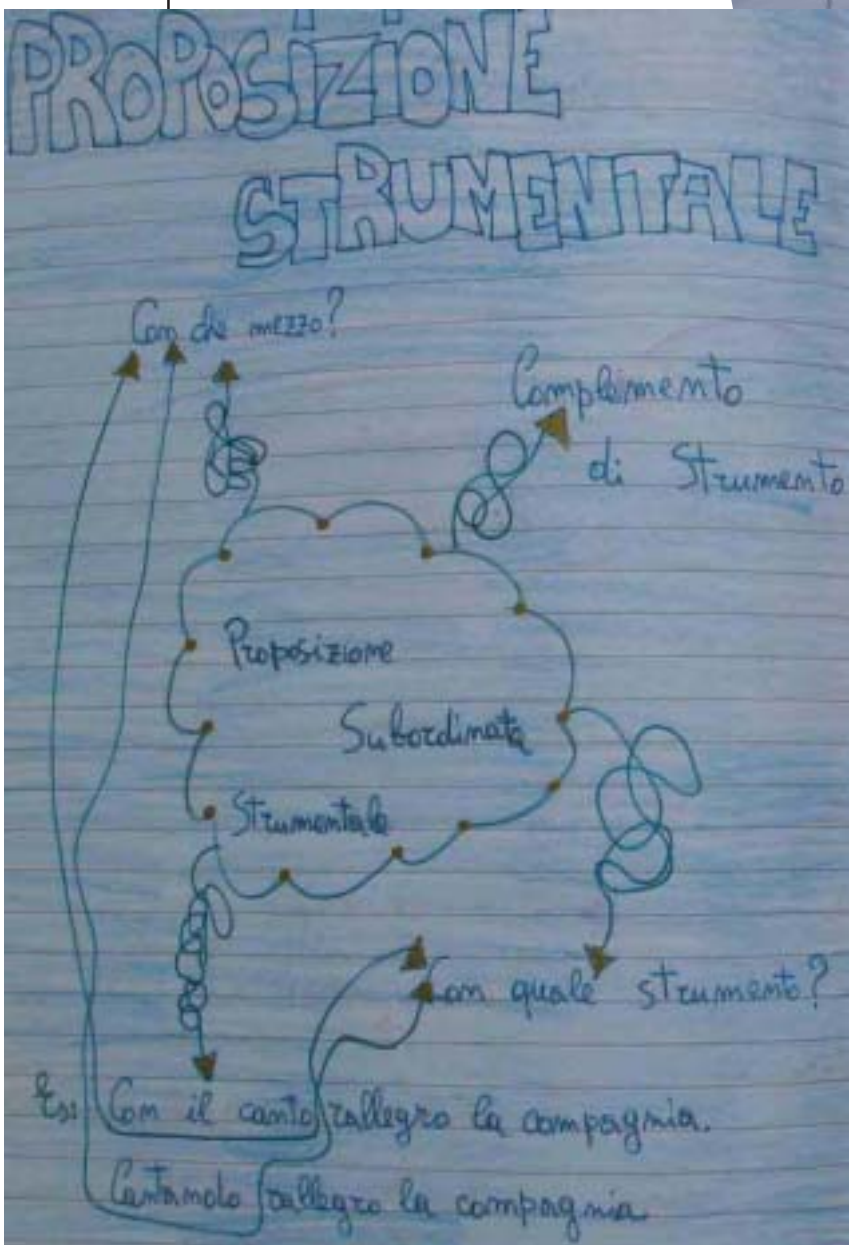 PROPOSIZIONE
STRUMENTALE
Con che mezzo?
Complemento
di Strumento
Proposizione
Subordinata
Strumentale
Con quale strumento?
Es: Con il canto rallegro la compagnia.
Cantando rallegro la compagnia.